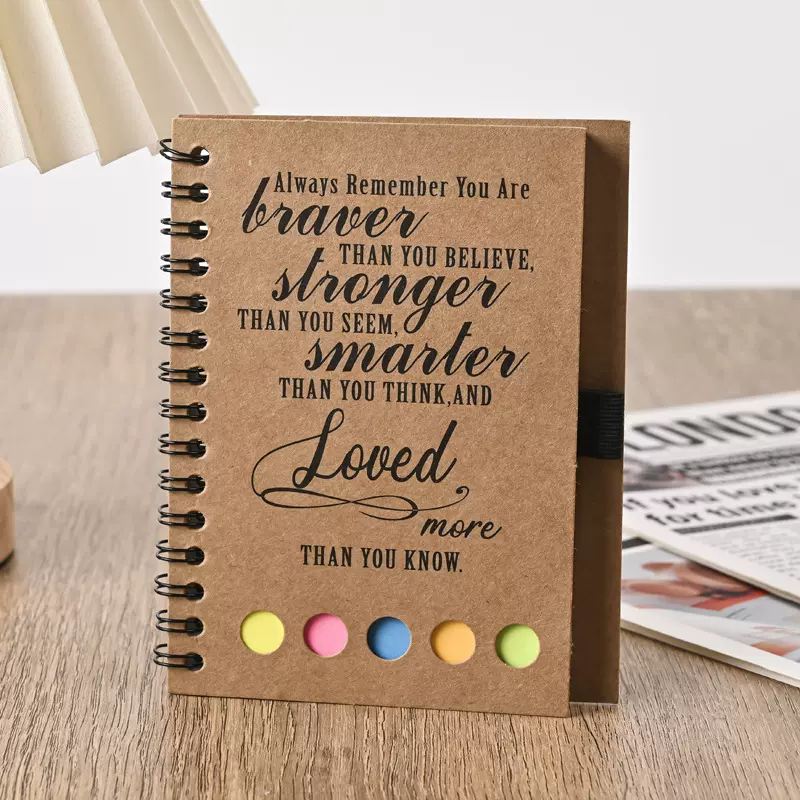 Always Remember You Are
braver
THAN YOU BELIEVE,
stronger
THAN YOU SEEM,
smarter
THAN YOU THINK,AND
Loved
more
THAN YOU KNOW.
LONDON
you love
for time